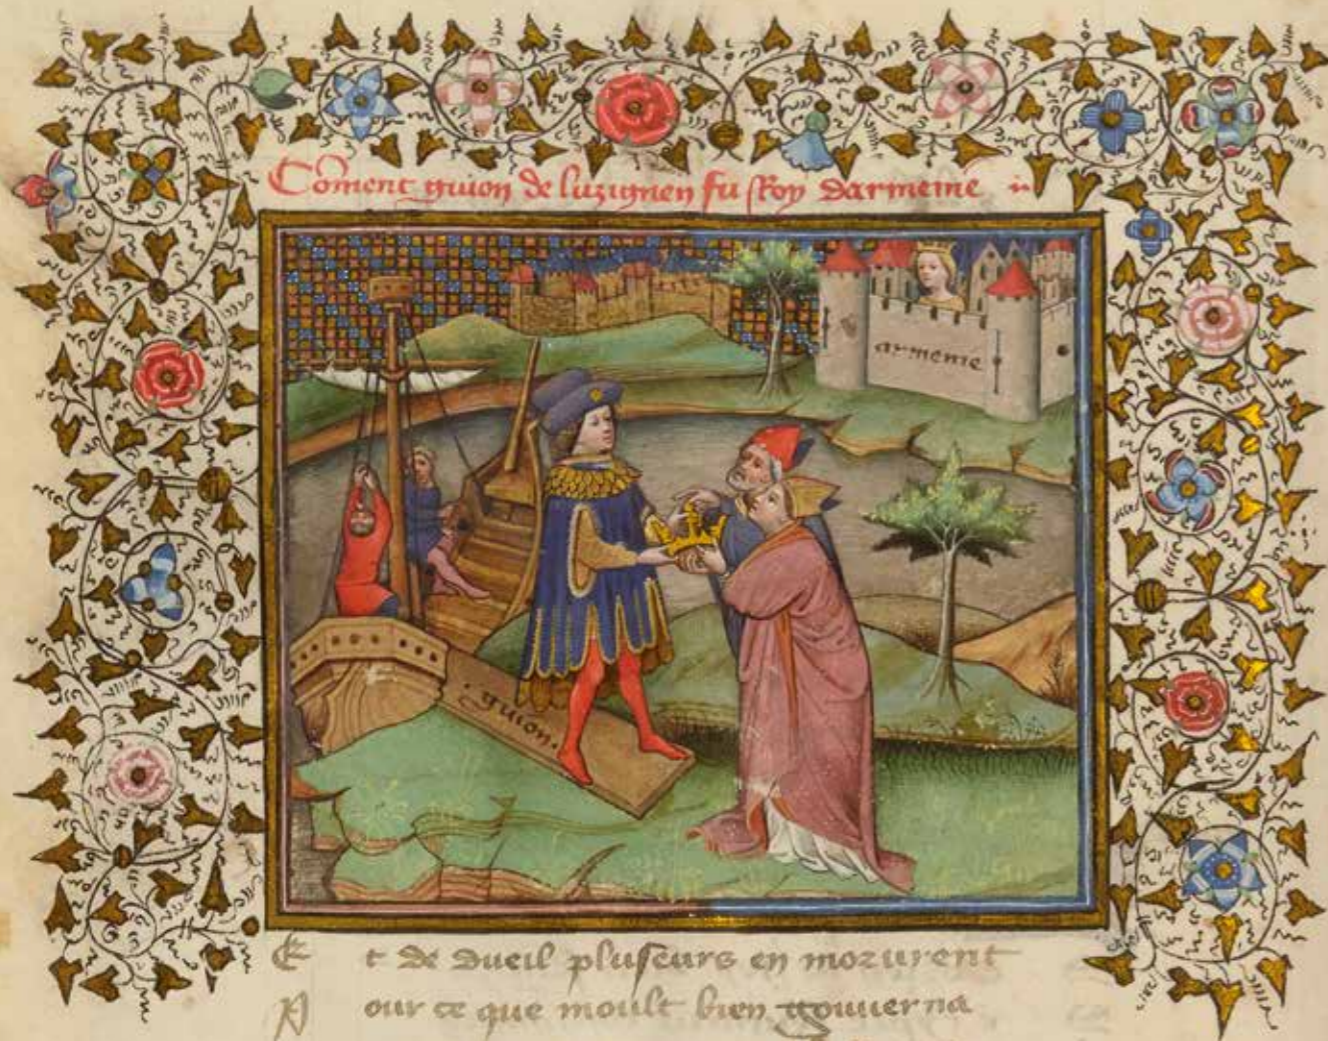 Com̄ent guion de luzignen fu Roy darmenie
armenie
guion.
Et de dueil pluseurs en morurent
Pour ce que moult bien gouuerna